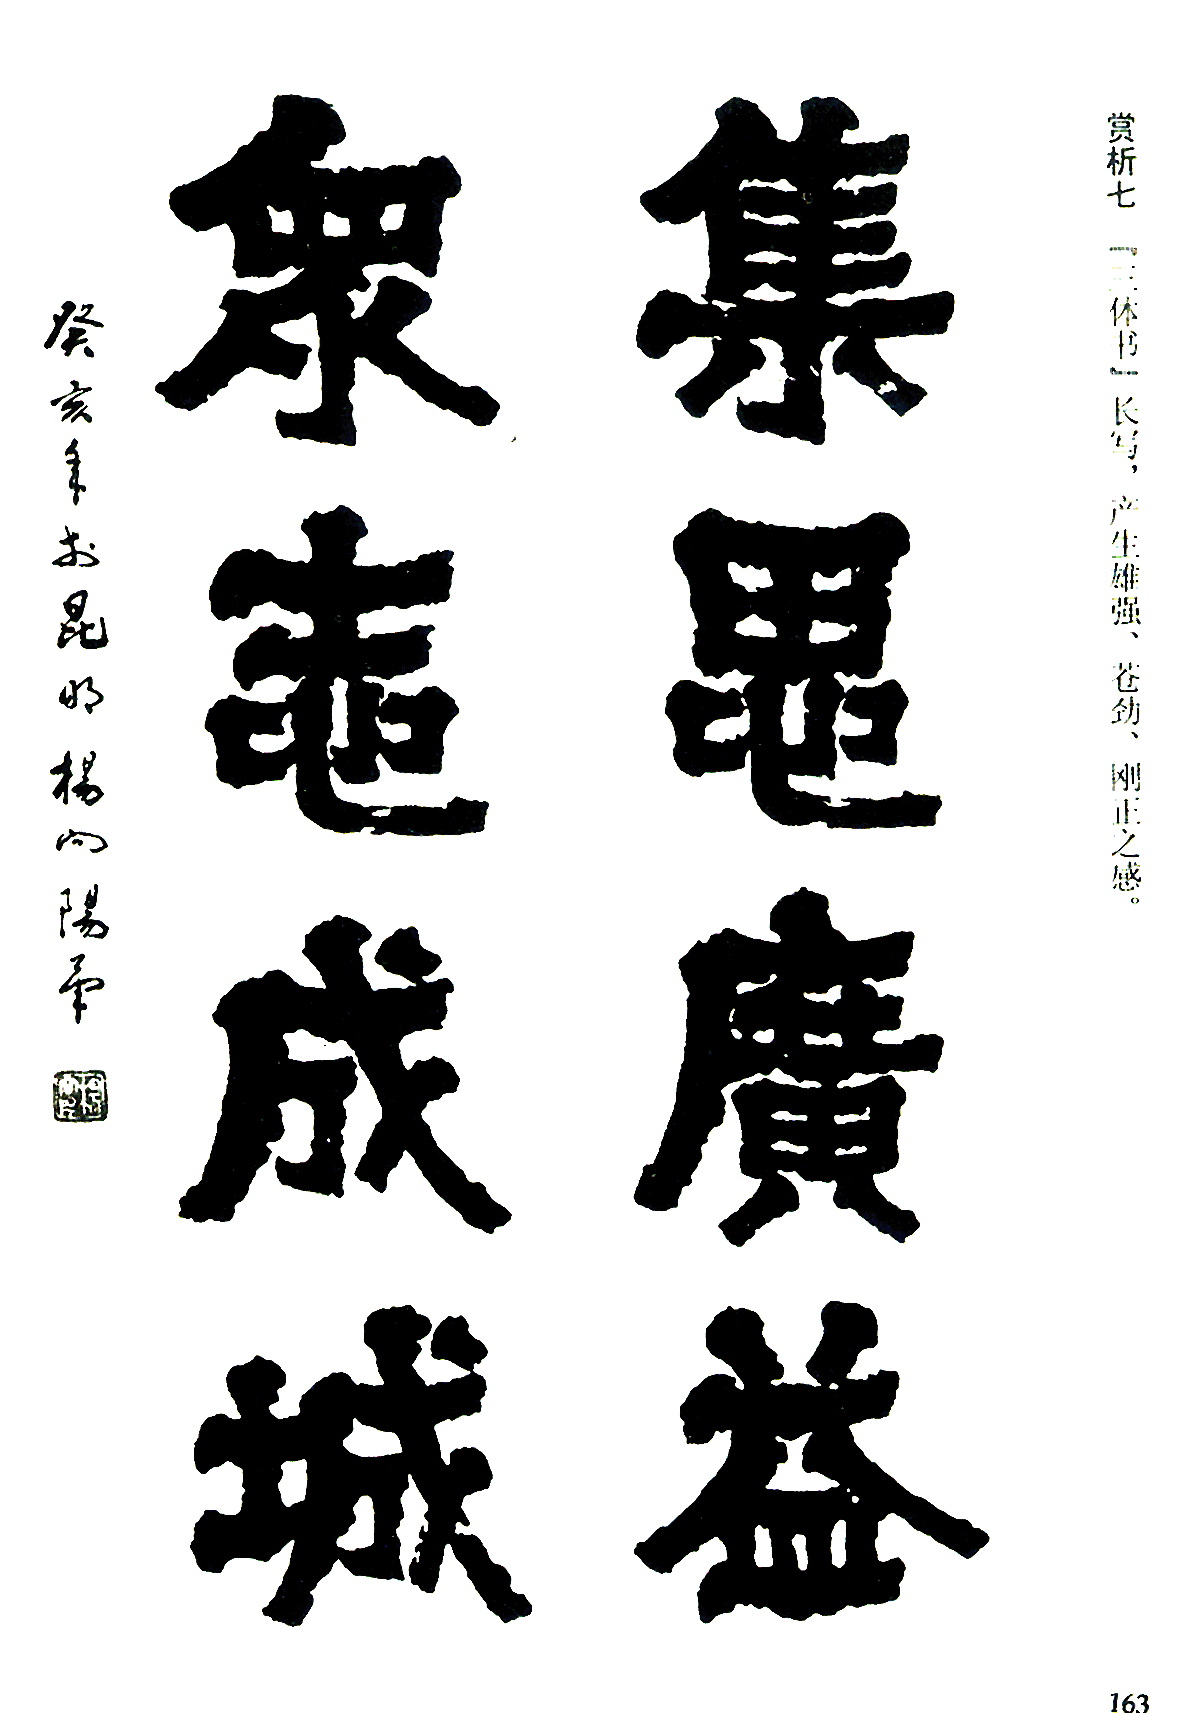 赏析七 『三体书』长写，产生雄强、苍劲、刚正之感。
集思廣益
衆志成城
癸亥年於昆明楊向陽筆
163